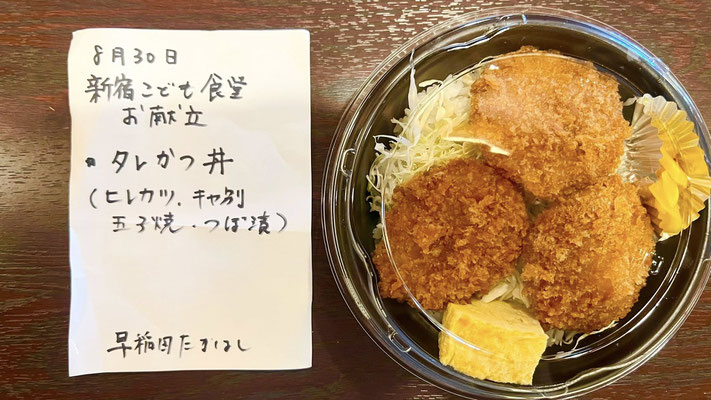 8月30日
新宿こども食堂
お献立
・タレかつ丼
(ヒレカツ、キャ別
玉子焼・つぼ漬)
早稲田たかはし